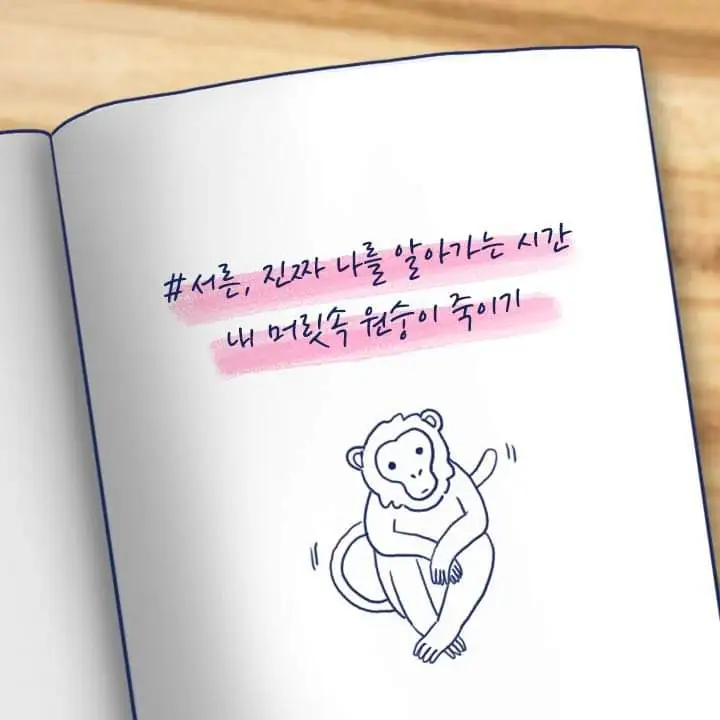 #서른, 진짜 나를 알아가는 시간
내 머릿속 원숭이 죽이기